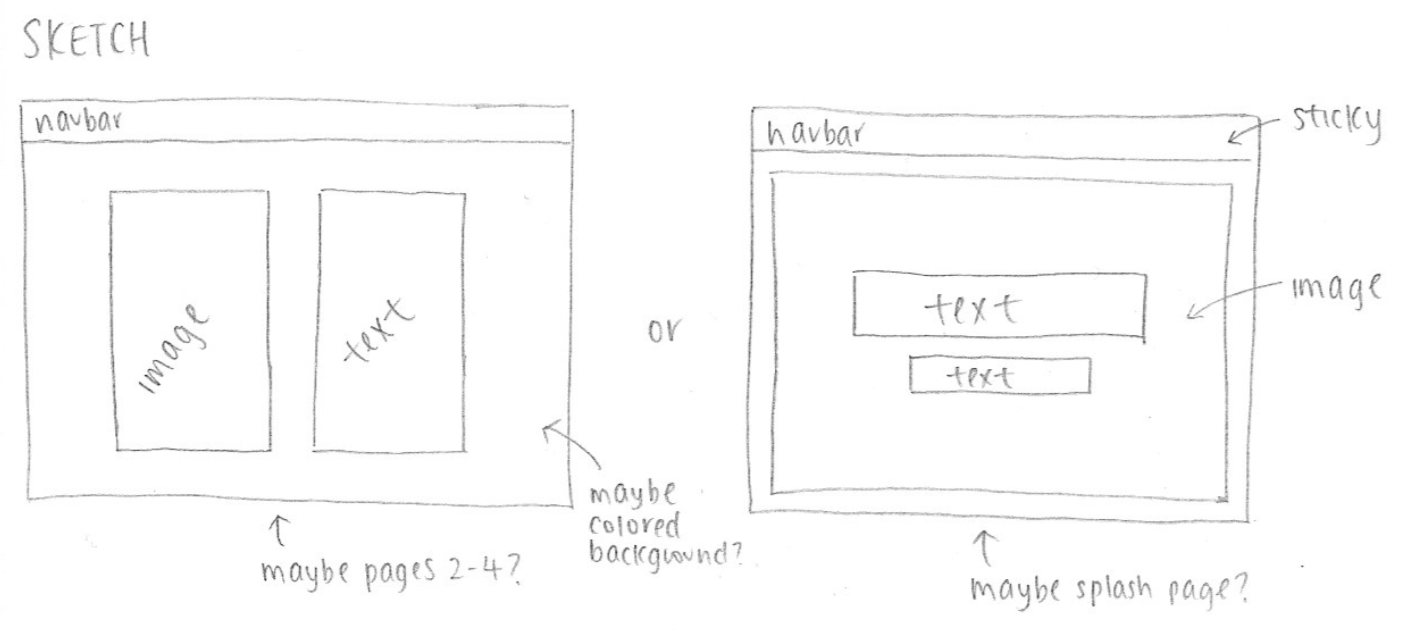 SKETCH
navbar
image
text
maybe
colored
background?
maybe pages 2-4?
or
navbar
sticky
text
text
image
maybe splash page?